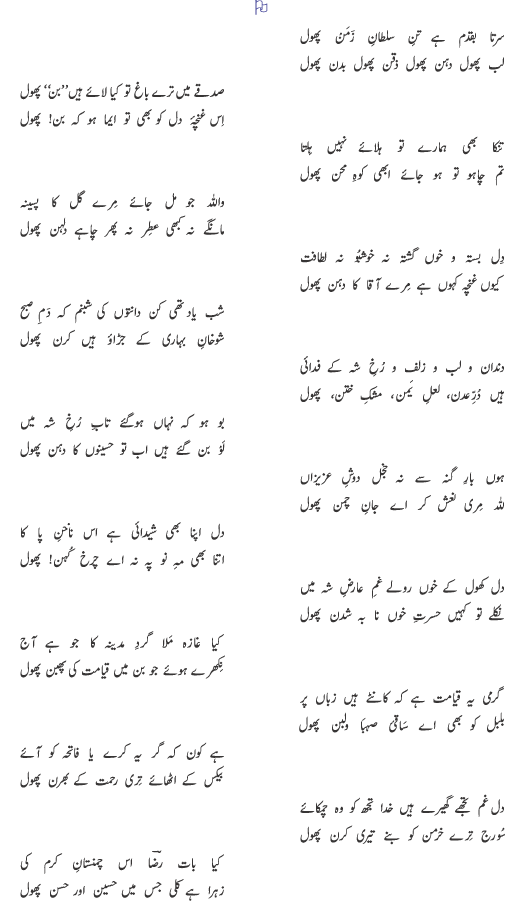 سرتا بقدم ہے تنِ سلطانِ زَمَن پھول
لب پھول دہن پھول ذقن پھول بدن پھول
صدقے میں ترے باغ تو کیا لائے ہیں ”بن“ پھول
اِس غنچۂ دل کو بھی تو ایما ہو کہ بن! پھول
تنکا بھی ہمارے تو ہلائے نہیں ہلتا
تم چاہو تو ہو جائے ابھی کوہِ محن پھول
واللہ جو مل جائے مِرے گل کا پسینہ
مانگے نہ کبھی عطر نہ پھر چاہے دلہن پھول
دِل بستہ و خوں گشتہ نہ خوشبُو نہ لطافت
کیوں غنچہ کہوں ہے مِرے آقا کا دہن پھول
شب یاد تھی کن دانتوں کی شبنم کہ دَمِ صبح
شوخانِ بہاری کے جڑاؤ ہیں کرن پھول
دندان و لب و زلف و رُخِ شہ کے فدائی
ہیں دُرِّ عدن، لعلِ یَمن، مشکِ ختن، پھول
بو ہو کہ نہاں ہوگئے تابِ رُخِ شہ میں
لَو بن گئے ہیں اب تو حسینوں کا دہن پھول
ہوں بارِ گنہ سے نہ خجل دوشِ عزیزاں
للہ مِری نعش کر اے جانِ چمن پھول
دل اپنا بھی شیدائی ہے اس ناخنِ پا کا
اتنا بھی مہِ نو پہ نہ اے چرخِ کُہن! پھول
دل کھول کے خوں رولے غمِ عارضِ شہ میں
نکلے تو کہیں حسرتِ خوں نا بہ شدن پھول
کیا غازہ مَلا گردِ مدینہ کا جو ہے آج
نِکھرے ہوئے جو بن میں قیامت کی پھبن پھول
گرمی یہ قیامت ہے کہ کانٹے ہیں زباں پر
بلبل کو بھی اے ساقیِ صہبا و لبن پھول
ہے کون کہ گر یہ کرے یا فاتحہ کو آئے
بیکس کے اٹھائے تِری رحمت کے بھرن پھول
دل غم تجھے گھیرے ہیں خدا تجھ کو وہ چمکائے
سُورج تِرے خرمن کو بنے تیری کرن پھول
کیا بات رضؔا اس چمنستانِ کرم کی
زہرا ہے کلی جس میں حسین اور حسن پھول